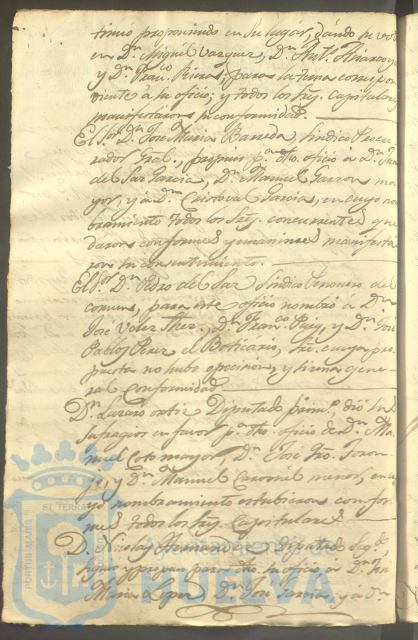 tinuó proponiendo en su lugar, dando su voto
en Dn. Miguel Vazquez, Dn. Ant. Alvarez
y Dn. Franco. Rivas, para la terna correspon
diente a su oficio; y todos los Sres. capitulares
manifestaron su conformidad.
El Sor. Dn. José Maria Barreda, Sindico Procu
rador Gral., propuso pa. dho. oficio a Dn. Juan
del Saz Garcia, Dn. Manuel Garzon ma
yor, y a Dn. Cristoval Garcia, en cuyo nom
bramiento todos los Sres. concurrentes que
daron conformes y unanimes manifesta
ron su consentimiento.
El Sor. Dn. Pedro del Saz Sindico Personero del
comun, para este oficio nombró a Dn.
José Velez, Dn. Franco. Puig, y Dn. José
Pablos Perez el Boticario, de cuya pro
puesta no hubo oposicion, y hubo gene
ral conformidad
Dn. Lazaro Ortiz Diputado primo., dió sus
sufragios en favor pa. dho. oficio de Dn. Ma
nuel Coto mayor, Dn. José
y Dn. Manuel Coronel menor, en cu
yo nombramiento estubieron confor
mes todos los Sres. Capitulares
D. Nicolas Hernandez Diputado Segdo.,
siguió y propuso para dho. su oficio, a Dn. José
Maria Lopez, Dn. José Garcia, y a Dn.
PORTUS MARIS ET TERRAE
Ayuntamiento de
HUELVA